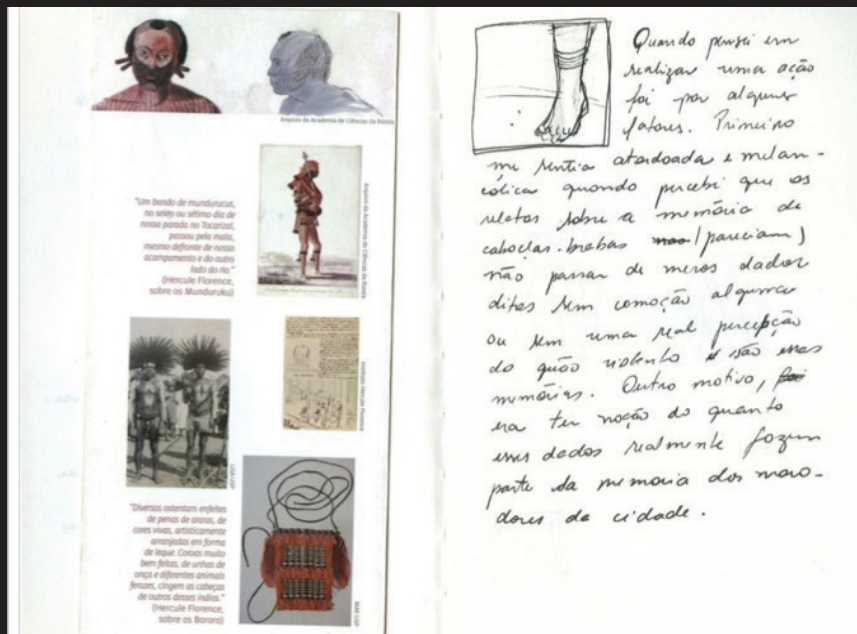 Arquivo da Academia de Ciências da Rússia
"Um bando de mundurucus,
no sexto ou sétimo dia de
nossa parada no Tocarizal,
passou pela mata,
mesmo defronte de nosso
acampamento e do outro
lado do rio."
(Hercule Florence,
sobre os Munduruku)
Arquivo da Academia de Ciências da Rússia
Instituto Hercule Florence
LISA USP
"Diversos ostentam enfeites
de penas de araras, de
cores vivas, artisticamente
arranjadas em forma
de leque. Coroas muito
bem feitas, de unhas de
onça e diferentes animais
ferozes, cingem as cabeças
de outros desses índios."
(Hercule Florence,
sobre os Bororo)
MAE USP
Quando pensei em
realizar uma ação
foi por alguns
fatores. Primeiro
me sentia atordoada e melan-
cólica quando percebi que os
relatos sobre a memória de
caboclas-brabas (pareciam)
não passar de meros dados
ditos sem comoção alguma
ou sem uma real percepção
do quão violento são essas
memórias. Outro motivo,
era ter noção do quanto
esses dados realmente fazem
parte da memoia dos mora-
dores da cidade.